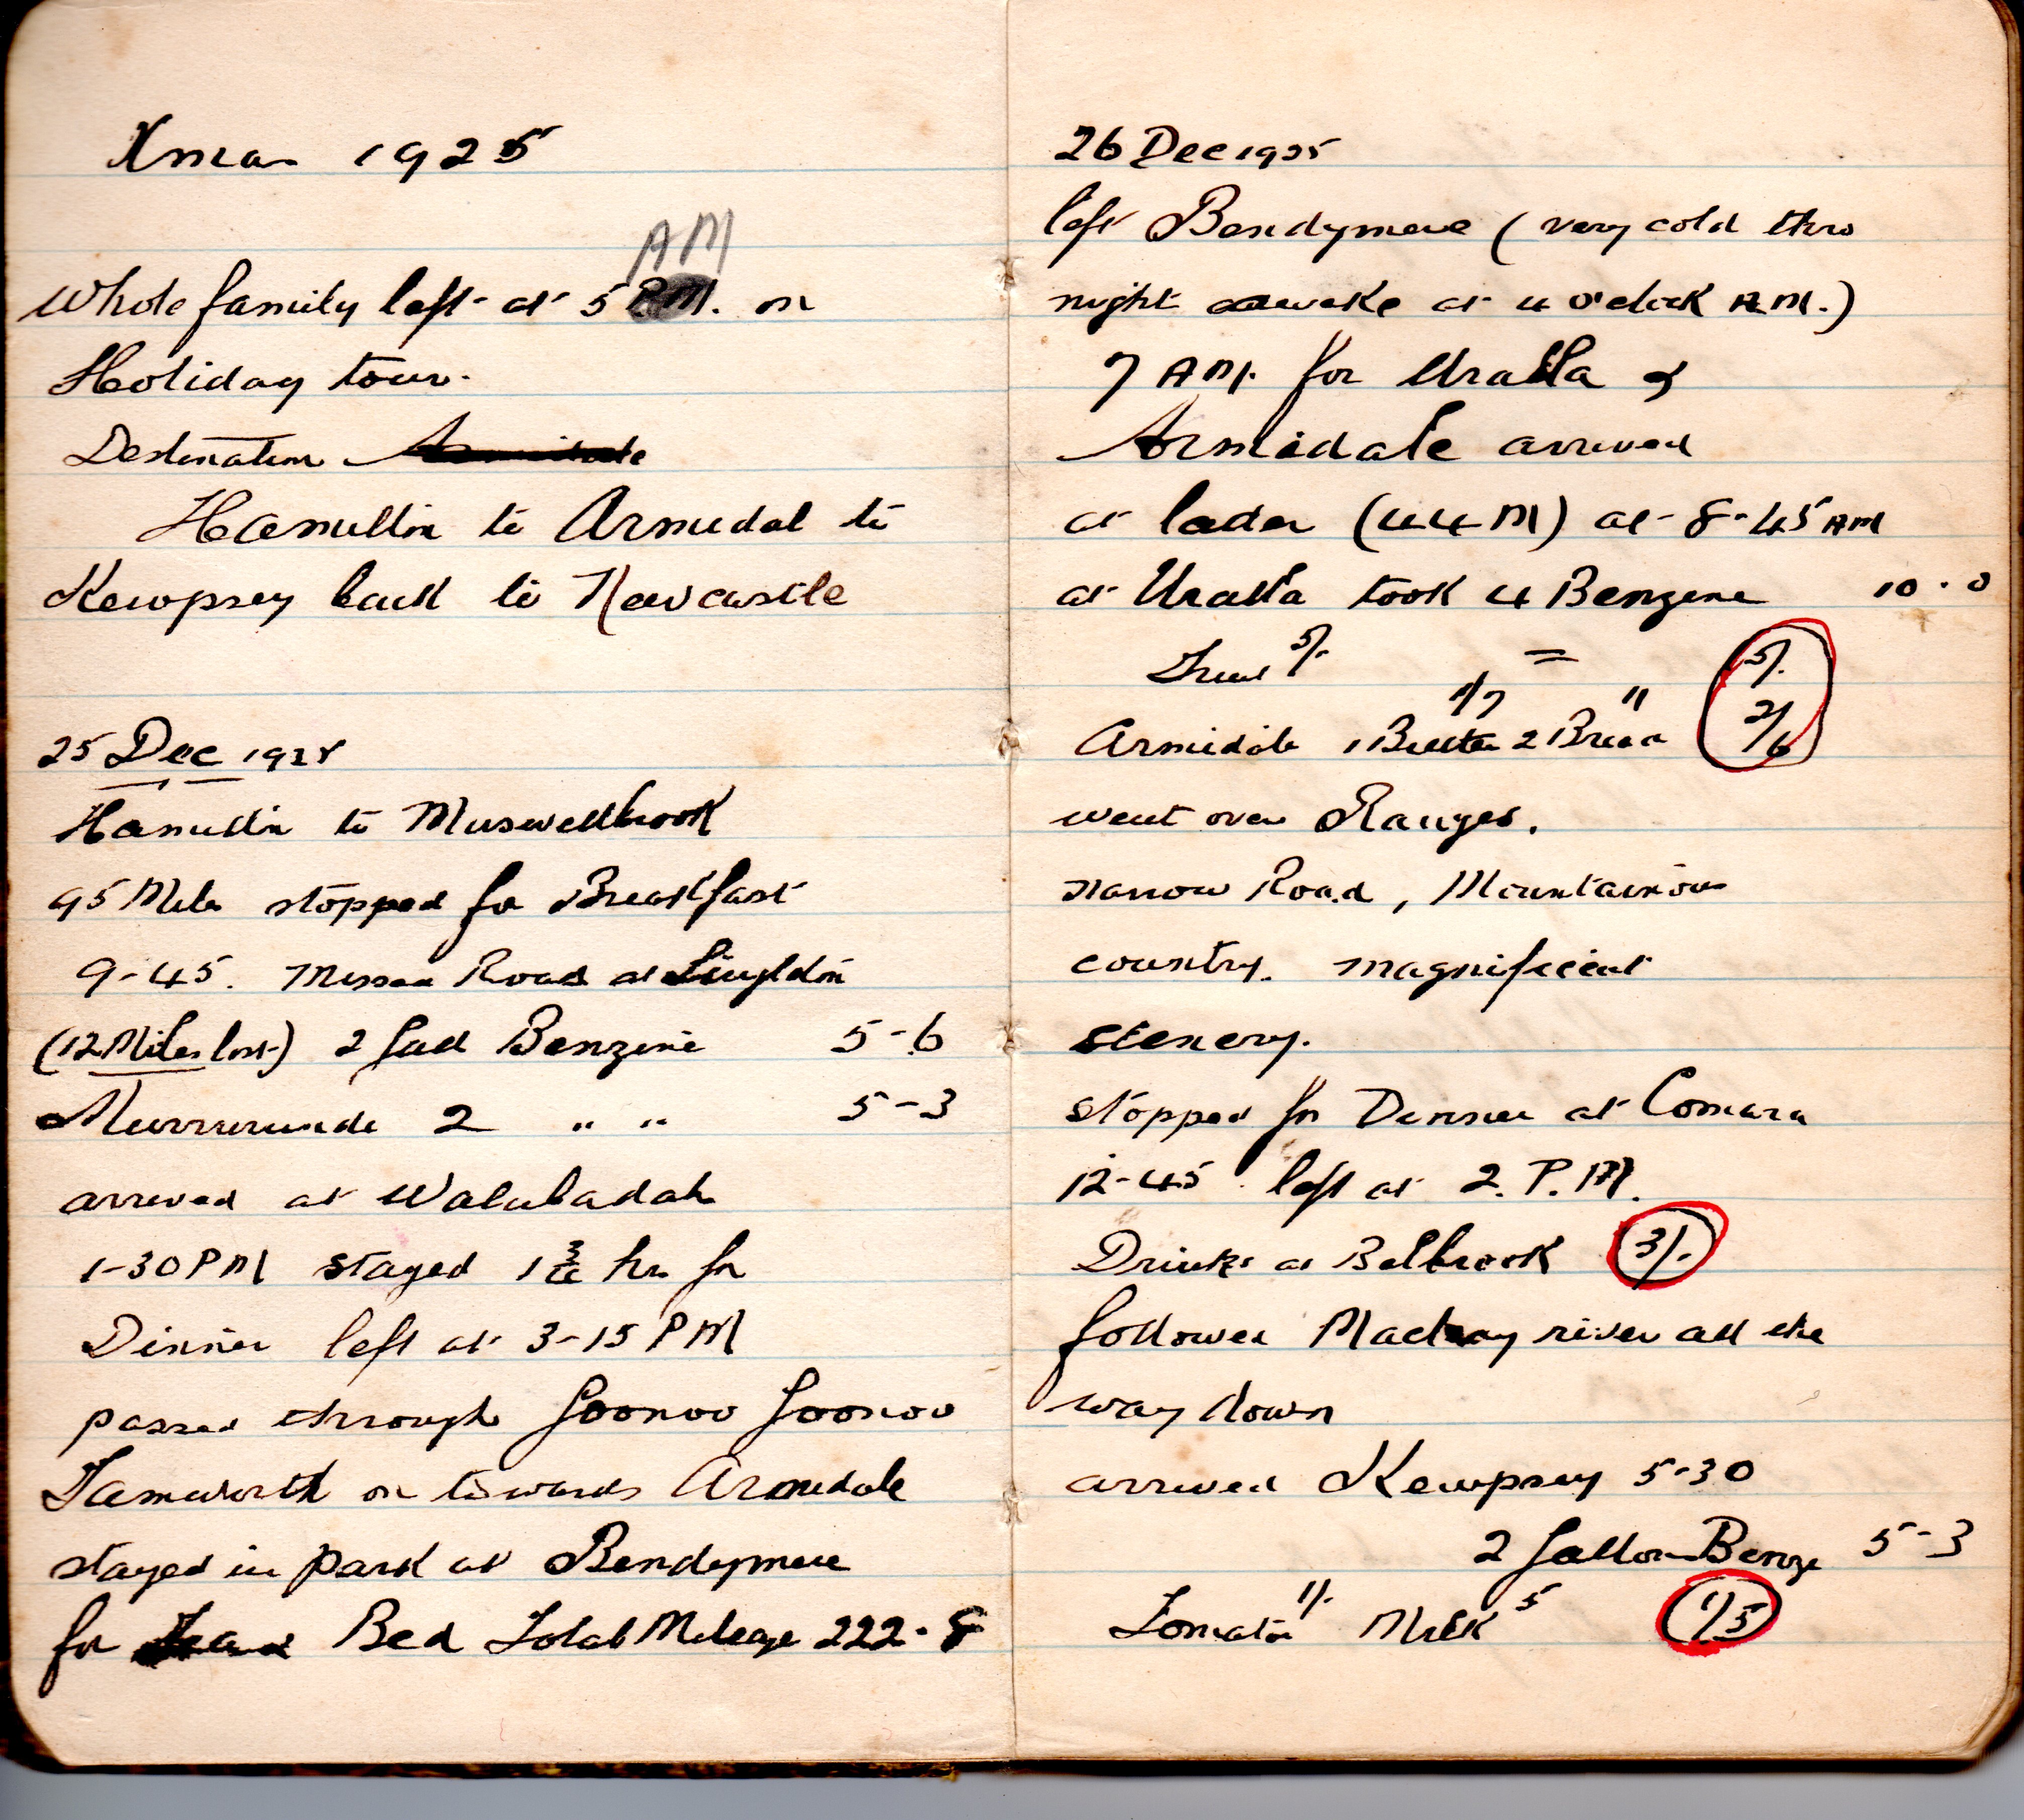 Xmas 1925
AM
Whole family left at 5 PM. on
Holiday tour.
Destination Armidale
Hamilton to Armidal to
Kewpsey back to Newcastle
25 Dec 1925
Hamilton to Muswellbrook
95 Miles stopped for Breakfast
9-45. Missed Road at Singleton
(12 Miles lost) 2 Gall Benzine 5-6
Murrurunde 2 " " 5-3
arrived at Walabadah
1-30 PM stayed 1 3/4 hr for
Dinner left at 3-15 PM
passed through Goonoo Goonoo
Tamworth on towards Armidale
stayed in park at Bendymere
for Bed Total Mileage 222-8
26 Dec 1925
left Bendymere (very cold thro
night awake at 4 o'clock A.M.)
7 AM. for Uralla &
Armidale arrived
at (44 M) at 8-45 AM
at Uralla took 4 Benzene 10-0
5/- = 5/-
1/7 " 2/6
Armidale 1 Butter 2 Bread
went over Ranges.
narrow Road, Mountainous
country. magnificent
scenery.
stopped for Dinner at Comara
12-45 left at 2. P.M.
Drinks at Belbrook 3/-
followed Macleay river all the
way down
arrived Kewpsey 5-30
2 Gallon Benze 5-3
Tomatoe 1/- Milk 5 1/5